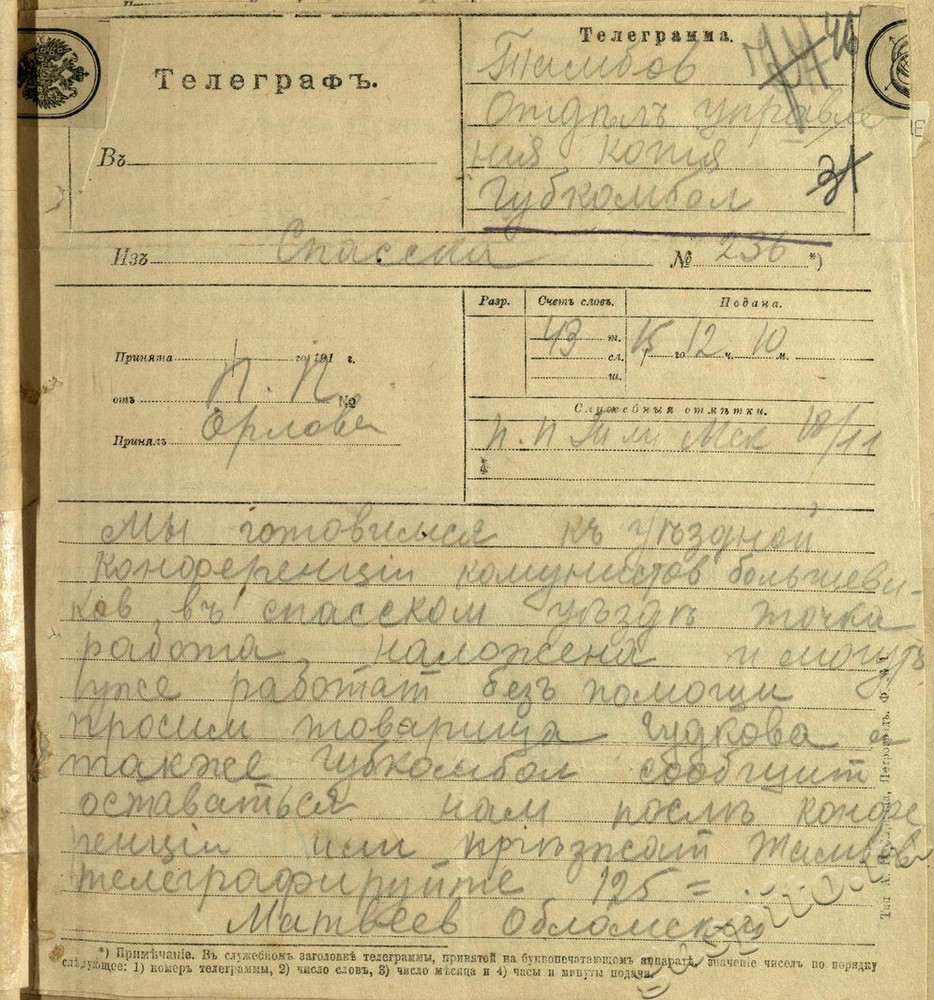 Телеграфъ.
Въ
Телеграмма.
Тамбов 46
Отдѣлъ управле-
ния копия
Губкомбол 31
Изъ Спасска № 236 *)
Разр. Счетъ словъ. Подана.
43 т. 15 го 12 ч. 10 м.
сл.
ш.
Принята го 191 г.
отъ П. П. №
Принялъ Орлова
Служебныя отмѣтки.
п. п Мск 18/11
Мы готовимся къ уѣздной
конференціи комунистов большеви-
ков въ спасском уѣздѣ точка
работа наложена и могутъ
уже работат безъ помощи
просим товарища Гудкова а
также Губкомбол сообщит
оставаться нам послѣ конфе
ренціи или пріѣзжат Тамбов
телеграфируйте 125 =
Матвеев Обломский
*) Примѣчаніе. Въ служебномъ заголовкѣ телеграммы, принятой на буквопечатающемъ аппаратѣ, значеніе чиселъ по порядку
слѣдующее: 1) номеръ телеграммы, 2) число словъ, 3) число мѣсяца и 4) часы и минуты подачи.